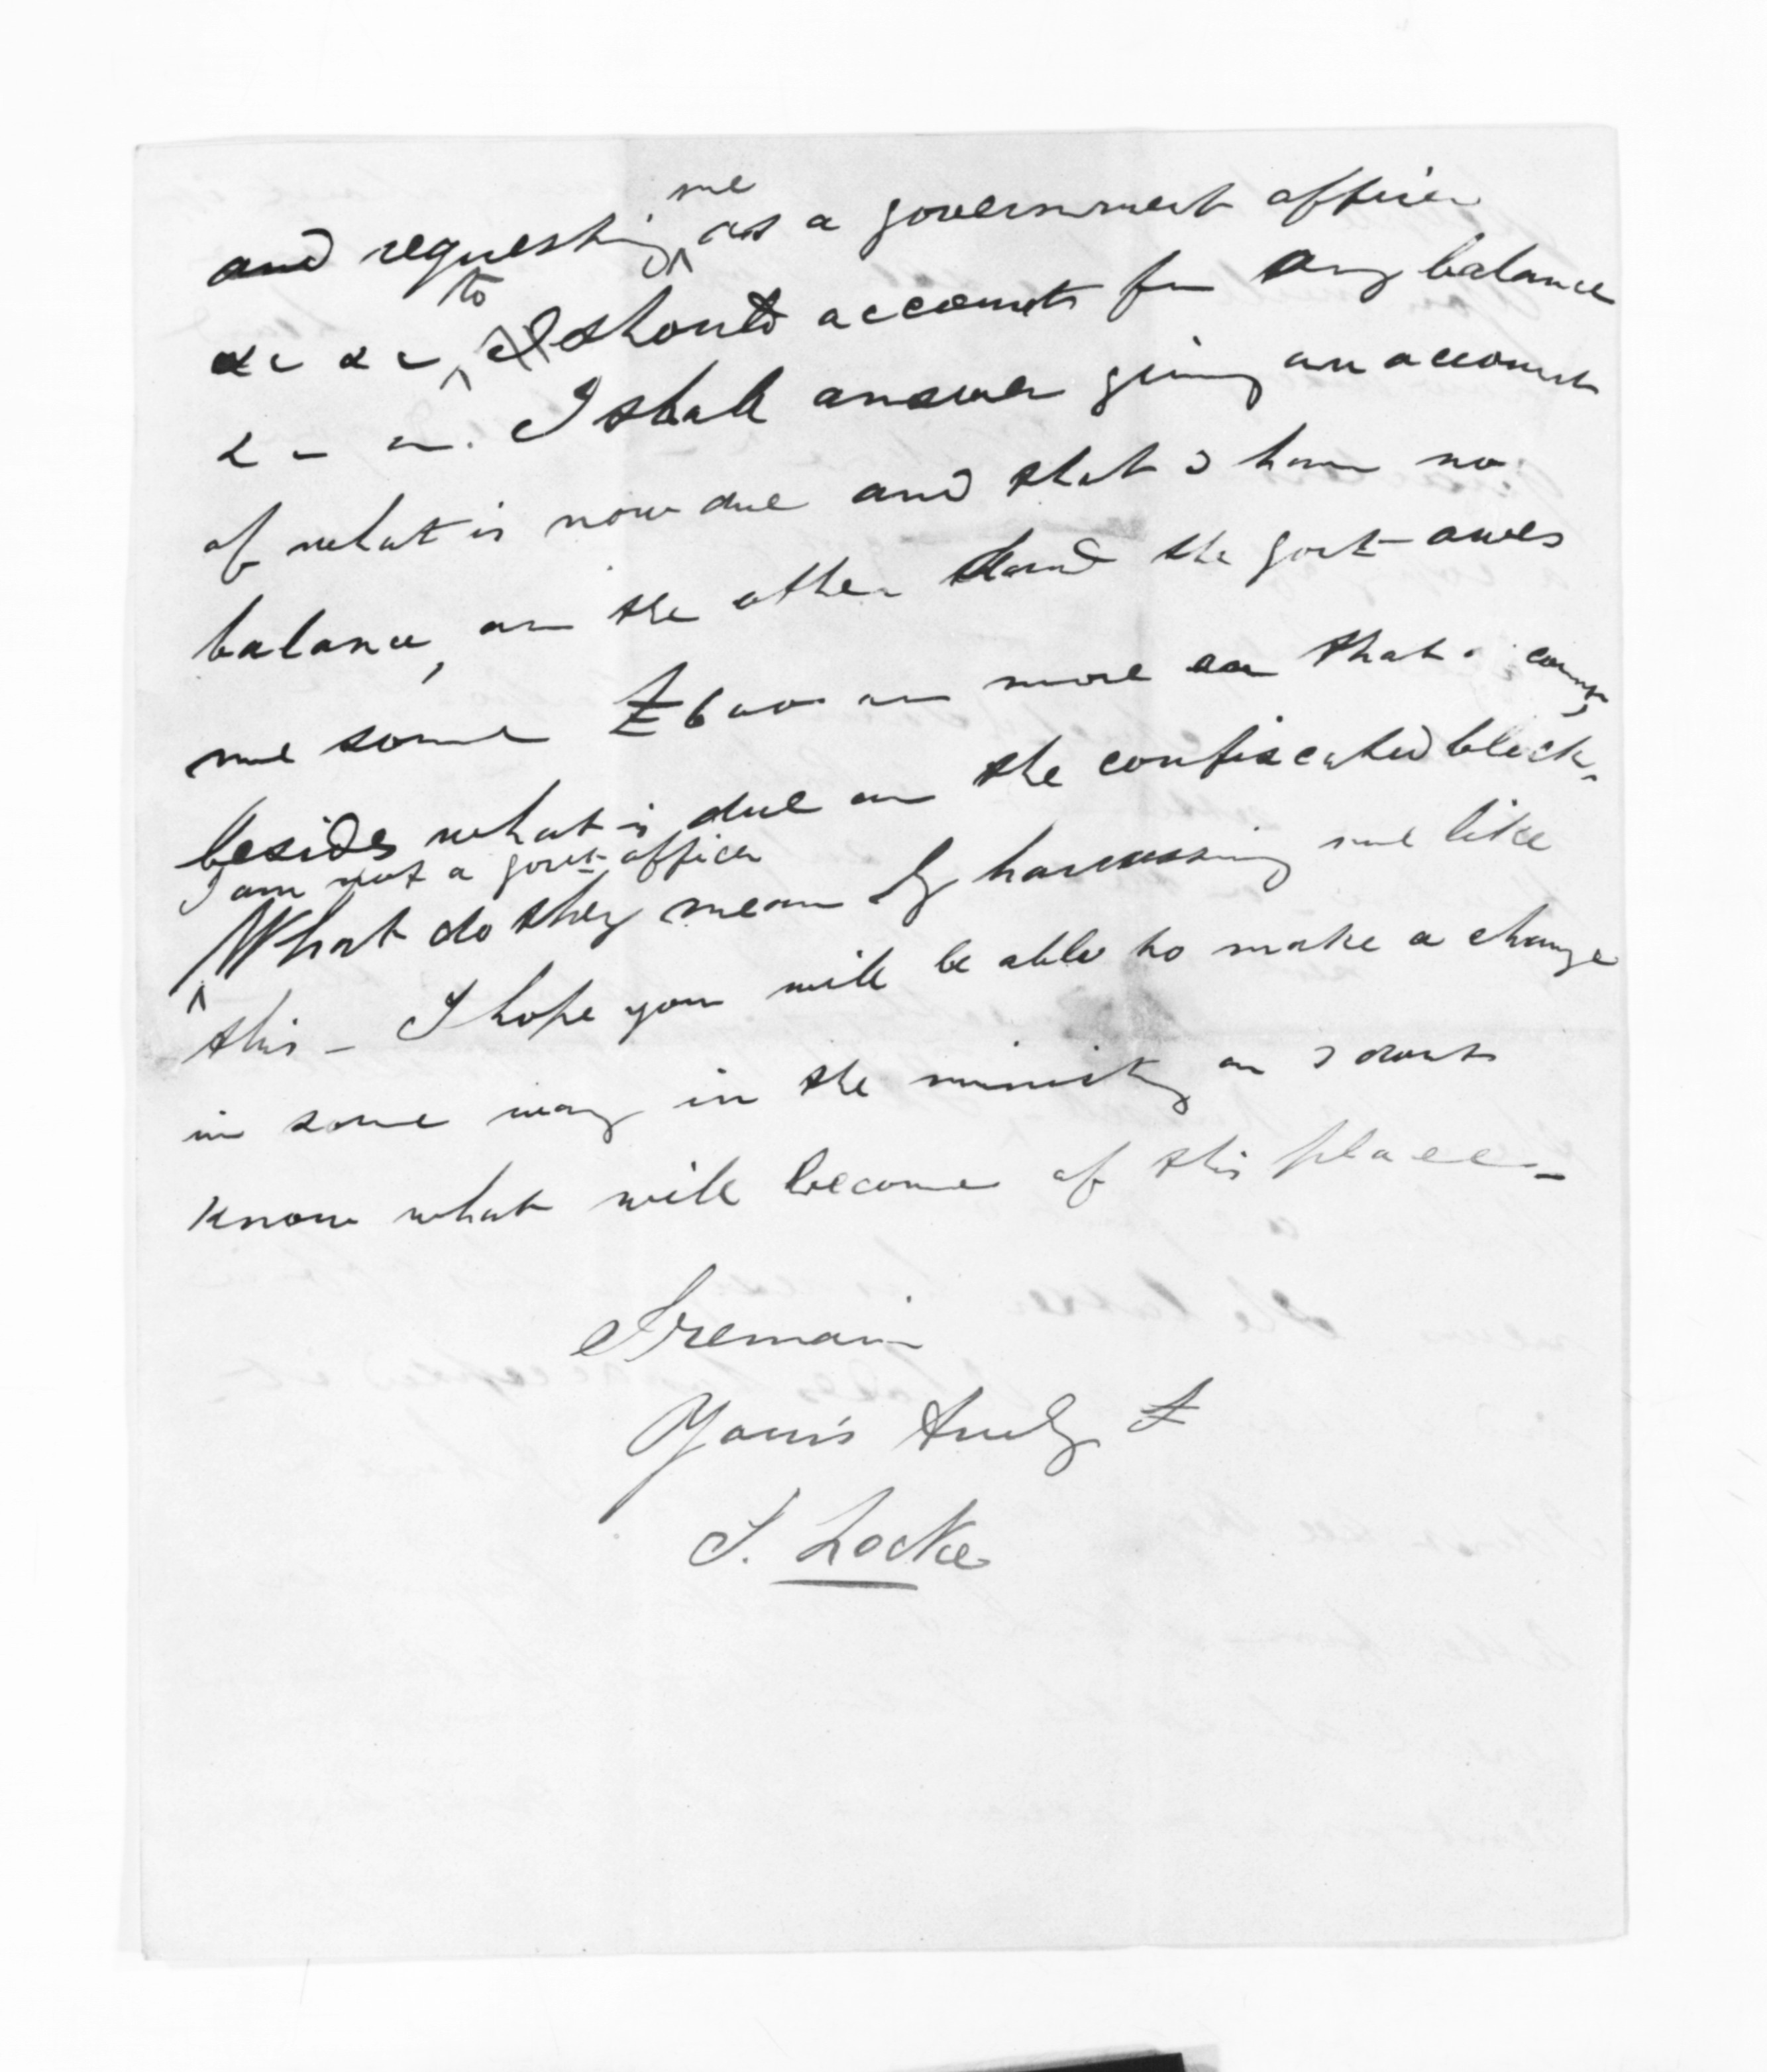 me
and requesting as a government officer
to
&c &c I should account for any balance
&c &c. I shall answer giving an account
of what is now due and that I have no
balance, on the other hand the govt owes
me some £600 or more on that
besides what is due on the confiscated block.
I am not a govt officer
What do they mean by harassing me like
this - I hope you will be able to make a change
in some way in the ministry or I dont
know what will become of this place -
I remain
Yours truly
S. Locke